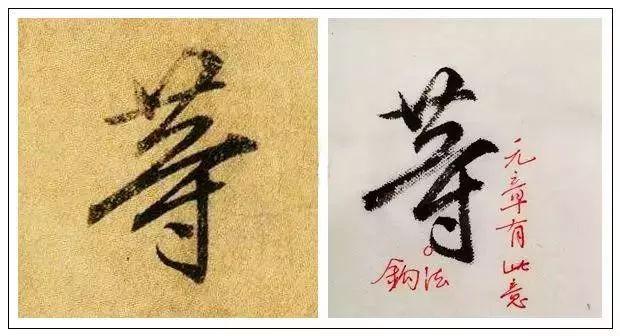 等
等
元章有此意
鈎法